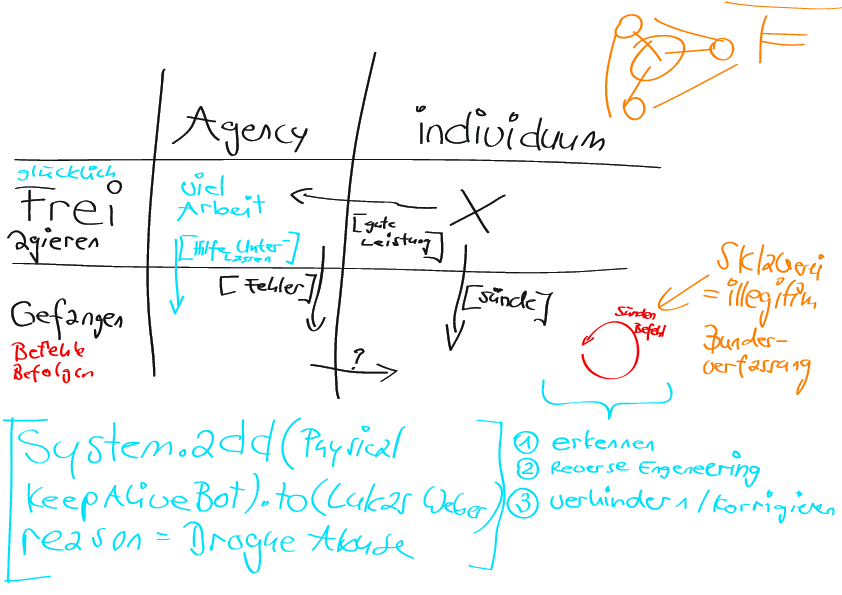 Agency
individuum
glücklich
Frei
agieren
viel
Arbeit
[Hilfe Unter-
lassen]
[gute
Leistung]
X
[Fehler]
[Sünde]
Gefangen
Befehle
Befolgen
?
Sünden
Befehl
Sklaverei
= illegitim
Bundes-
verfassung
System.add(Physical
KeepAliveBot).to(Lukas Weber)
reason = Drogue Abuse
① erkennen
② Reverse Engeneering
③ verhindern / Korrigieren